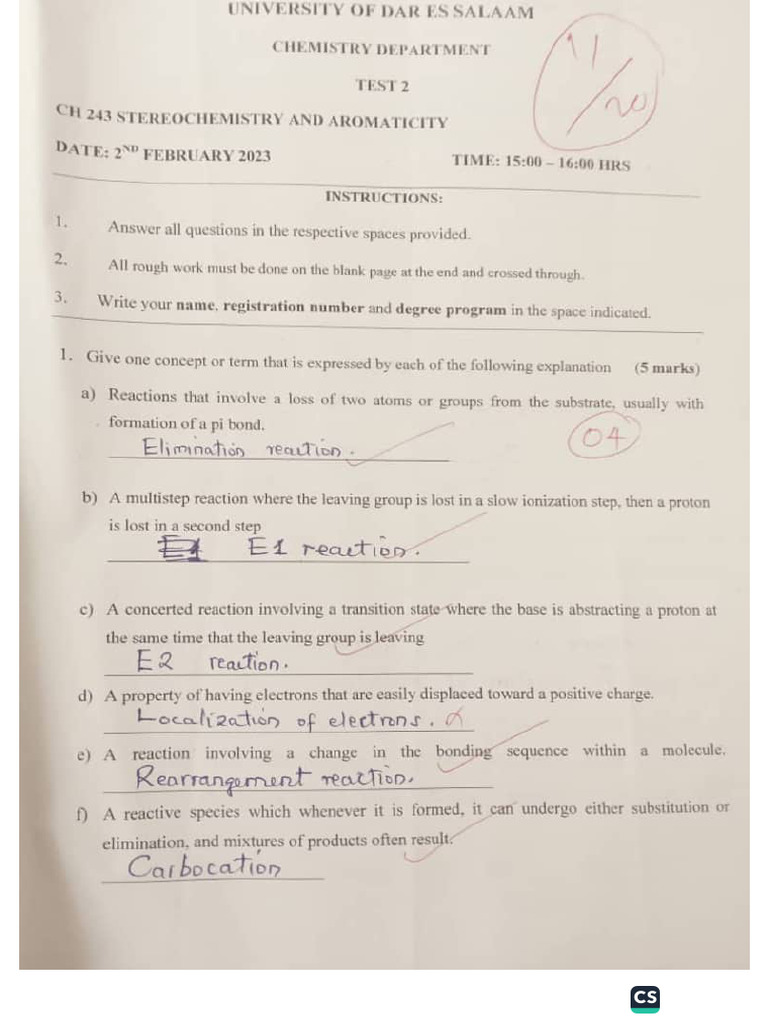 UNIVERSITY OF DAR ES SALAAM
CHEMISTRY DEPARTMENT
11/20
TEST 2
CH 243 STEREOCHEMISTRY AND AROMATICITY
DATE: 2ND FEBRUARY 2023 TIME: 15:00 – 16:00 HRS
INSTRUCTIONS:
1. Answer all questions in the respective spaces provided.
2. All rough work must be done on the blank page at the end and crossed through.
3. Write your name, registration number and degree program in the space indicated.
1. Give one concept or term that is expressed by each of the following explanation (5 marks)
a) Reactions that involve a loss of two atoms or groups from the substrate, usually with
formation of a pi bond.
04
Elimination reaction.
b) A multistep reaction where the leaving group is lost in a slow ionization step, then a proton
is lost in a second step
E1 E1 reaction.
c) A concerted reaction involving a transition state where the base is abstracting a proton at
the same time that the leaving group is leaving
E2 reaction.
d) A property of having electrons that are easily displaced toward a positive charge.
Localization of electrons.
e) A reaction involving a change in the bonding sequence within a molecule.
Rearrangement reaction.
f) A reactive species which whenever it is formed, it can undergo either substitution or
elimination, and mixtures of products often result.
Carbocation
CS